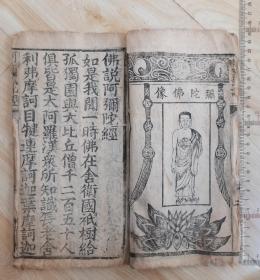 彌陀佛像
佛說阿彌陀經
如是我聞一時佛在舍衛國祇樹給
孤獨園與大比丘僧千二百五十人
俱皆是大阿羅漢衆所知識長老舍
利弗摩訶目犍連摩訶迦葉摩訶迦